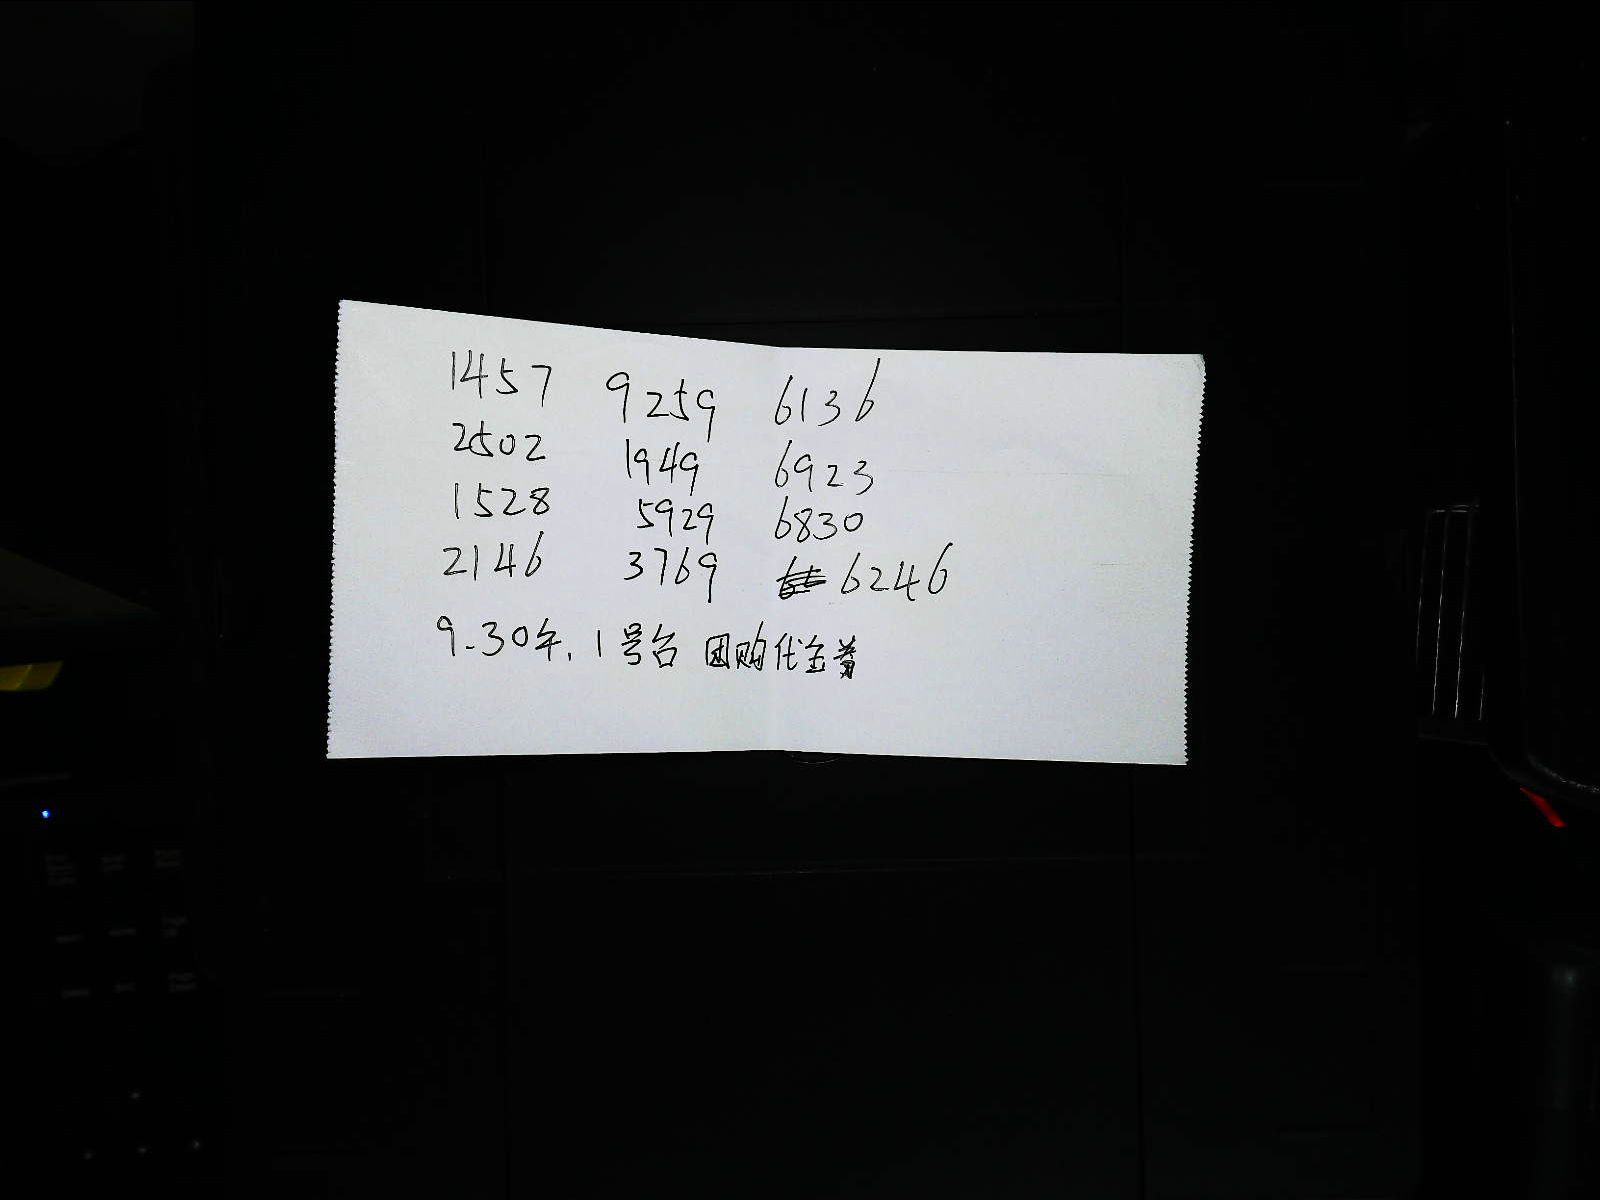 1457 9259 6136
2502 1949 6923
1528 5929 6830
2146 3769 6246
9.30午.1号台 团购代金券